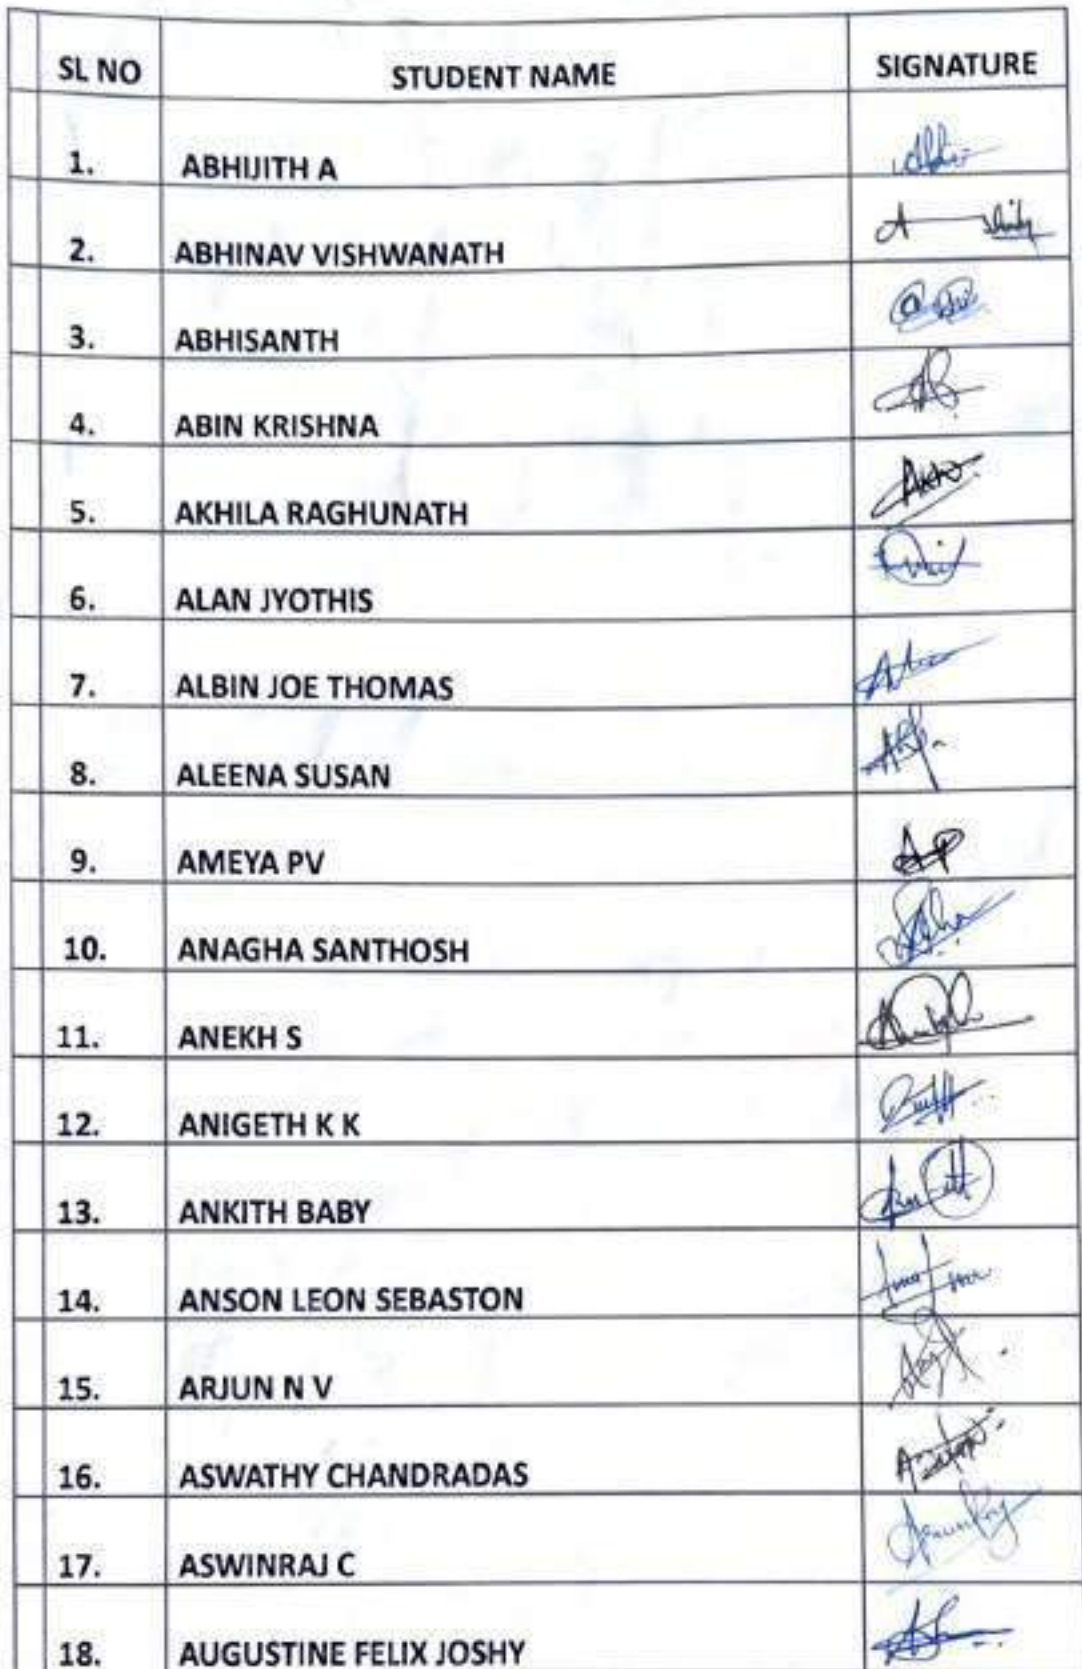 SL NO STUDENT NAME SIGNATURE
1. ABHIJITH A
2. ABHINAV VISHWANATH
3. ABHISANTH
4. ABIN KRISHNA
5. AKHILA RAGHUNATH
6. ALAN JYOTHIS
7. ALBIN JOE THOMAS
8. ALEENA SUSAN
9. AMEYA PV
10. ANAGHA SANTHOSH
11. ANEKH S
12. ANIGETH K K
13. ANKITH BABY
14. ANSON LEON SEBASTON
15. ARJUN N V
16. ASWATHY CHANDRADAS
17. ASWINRAJ C
18. AUGUSTINE FELIX JOSHY